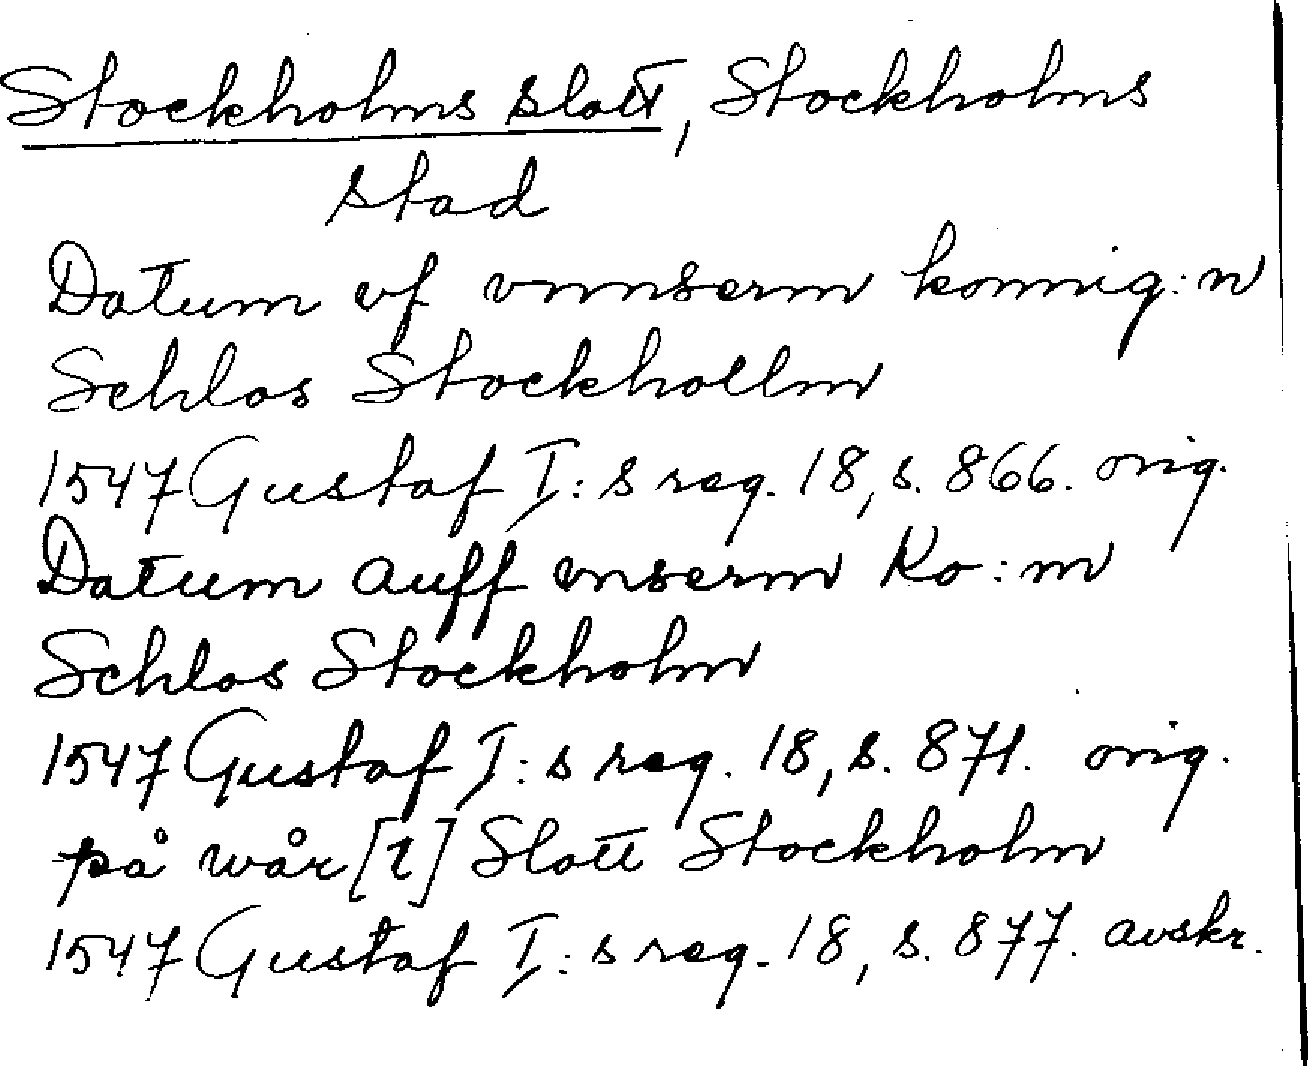 Stockholms slott, Stockholms
stad
Datum vf vnnserm konnig:n
Schlos Stockhollm
1547 Gustaf I:s reg. 18, s. 866. orig.
Datum auff vnserm Ko:m
Schlos Stockholm
1547 Gustaf I:s reg. 18, s. 871. orig.
på wår[t] Slott Stockholm
1547 Gustaf I:s reg. 18, s. 877. avskr.